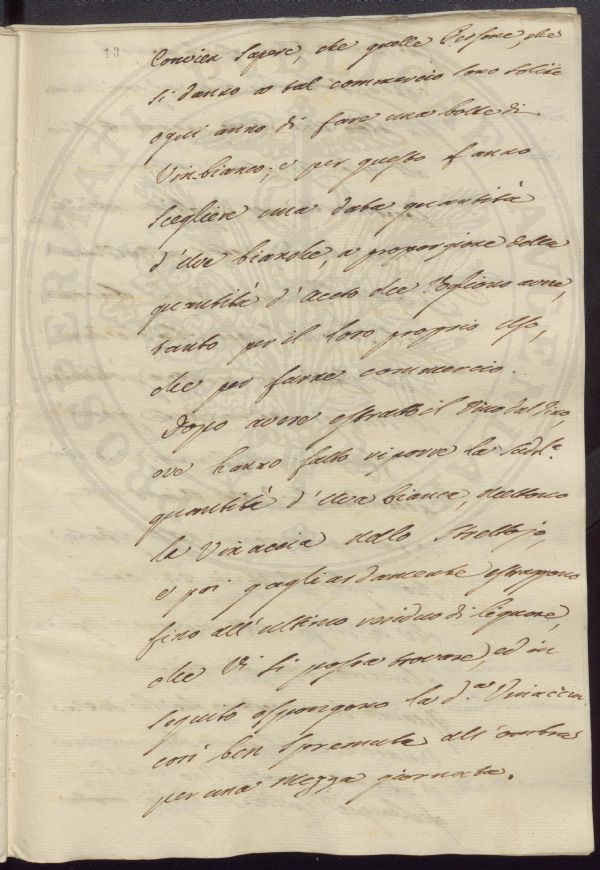 13
Convien Sapere, che quelle Persone, che
si danno a tal commercio sono solite
ogni anno di fare una botte di
Vin bianco; e per questo fanno
scegliere una data quantità
d'Uve bianche, a proporzione della
quantità d'Aceto che Vogliono avere,
tanto per il loro proprio Uso,
che per farne commercio.
Dopo avere estratto il Vino dal tino,
ove hanno fatto riporre la sud.a
quantità d'Uva bianca, mettono
la Vinaccia nello Strettojo,
e poi gagliardamente
fino all'ultimo residuo di liquore,
che Vi si possa trovare, ed in
seguito espongono la d.a Vinaccia
così ben spremuta all'ombra
per una mezza giornata.
PROSPERITATI PUBLICAE AUGENDAE